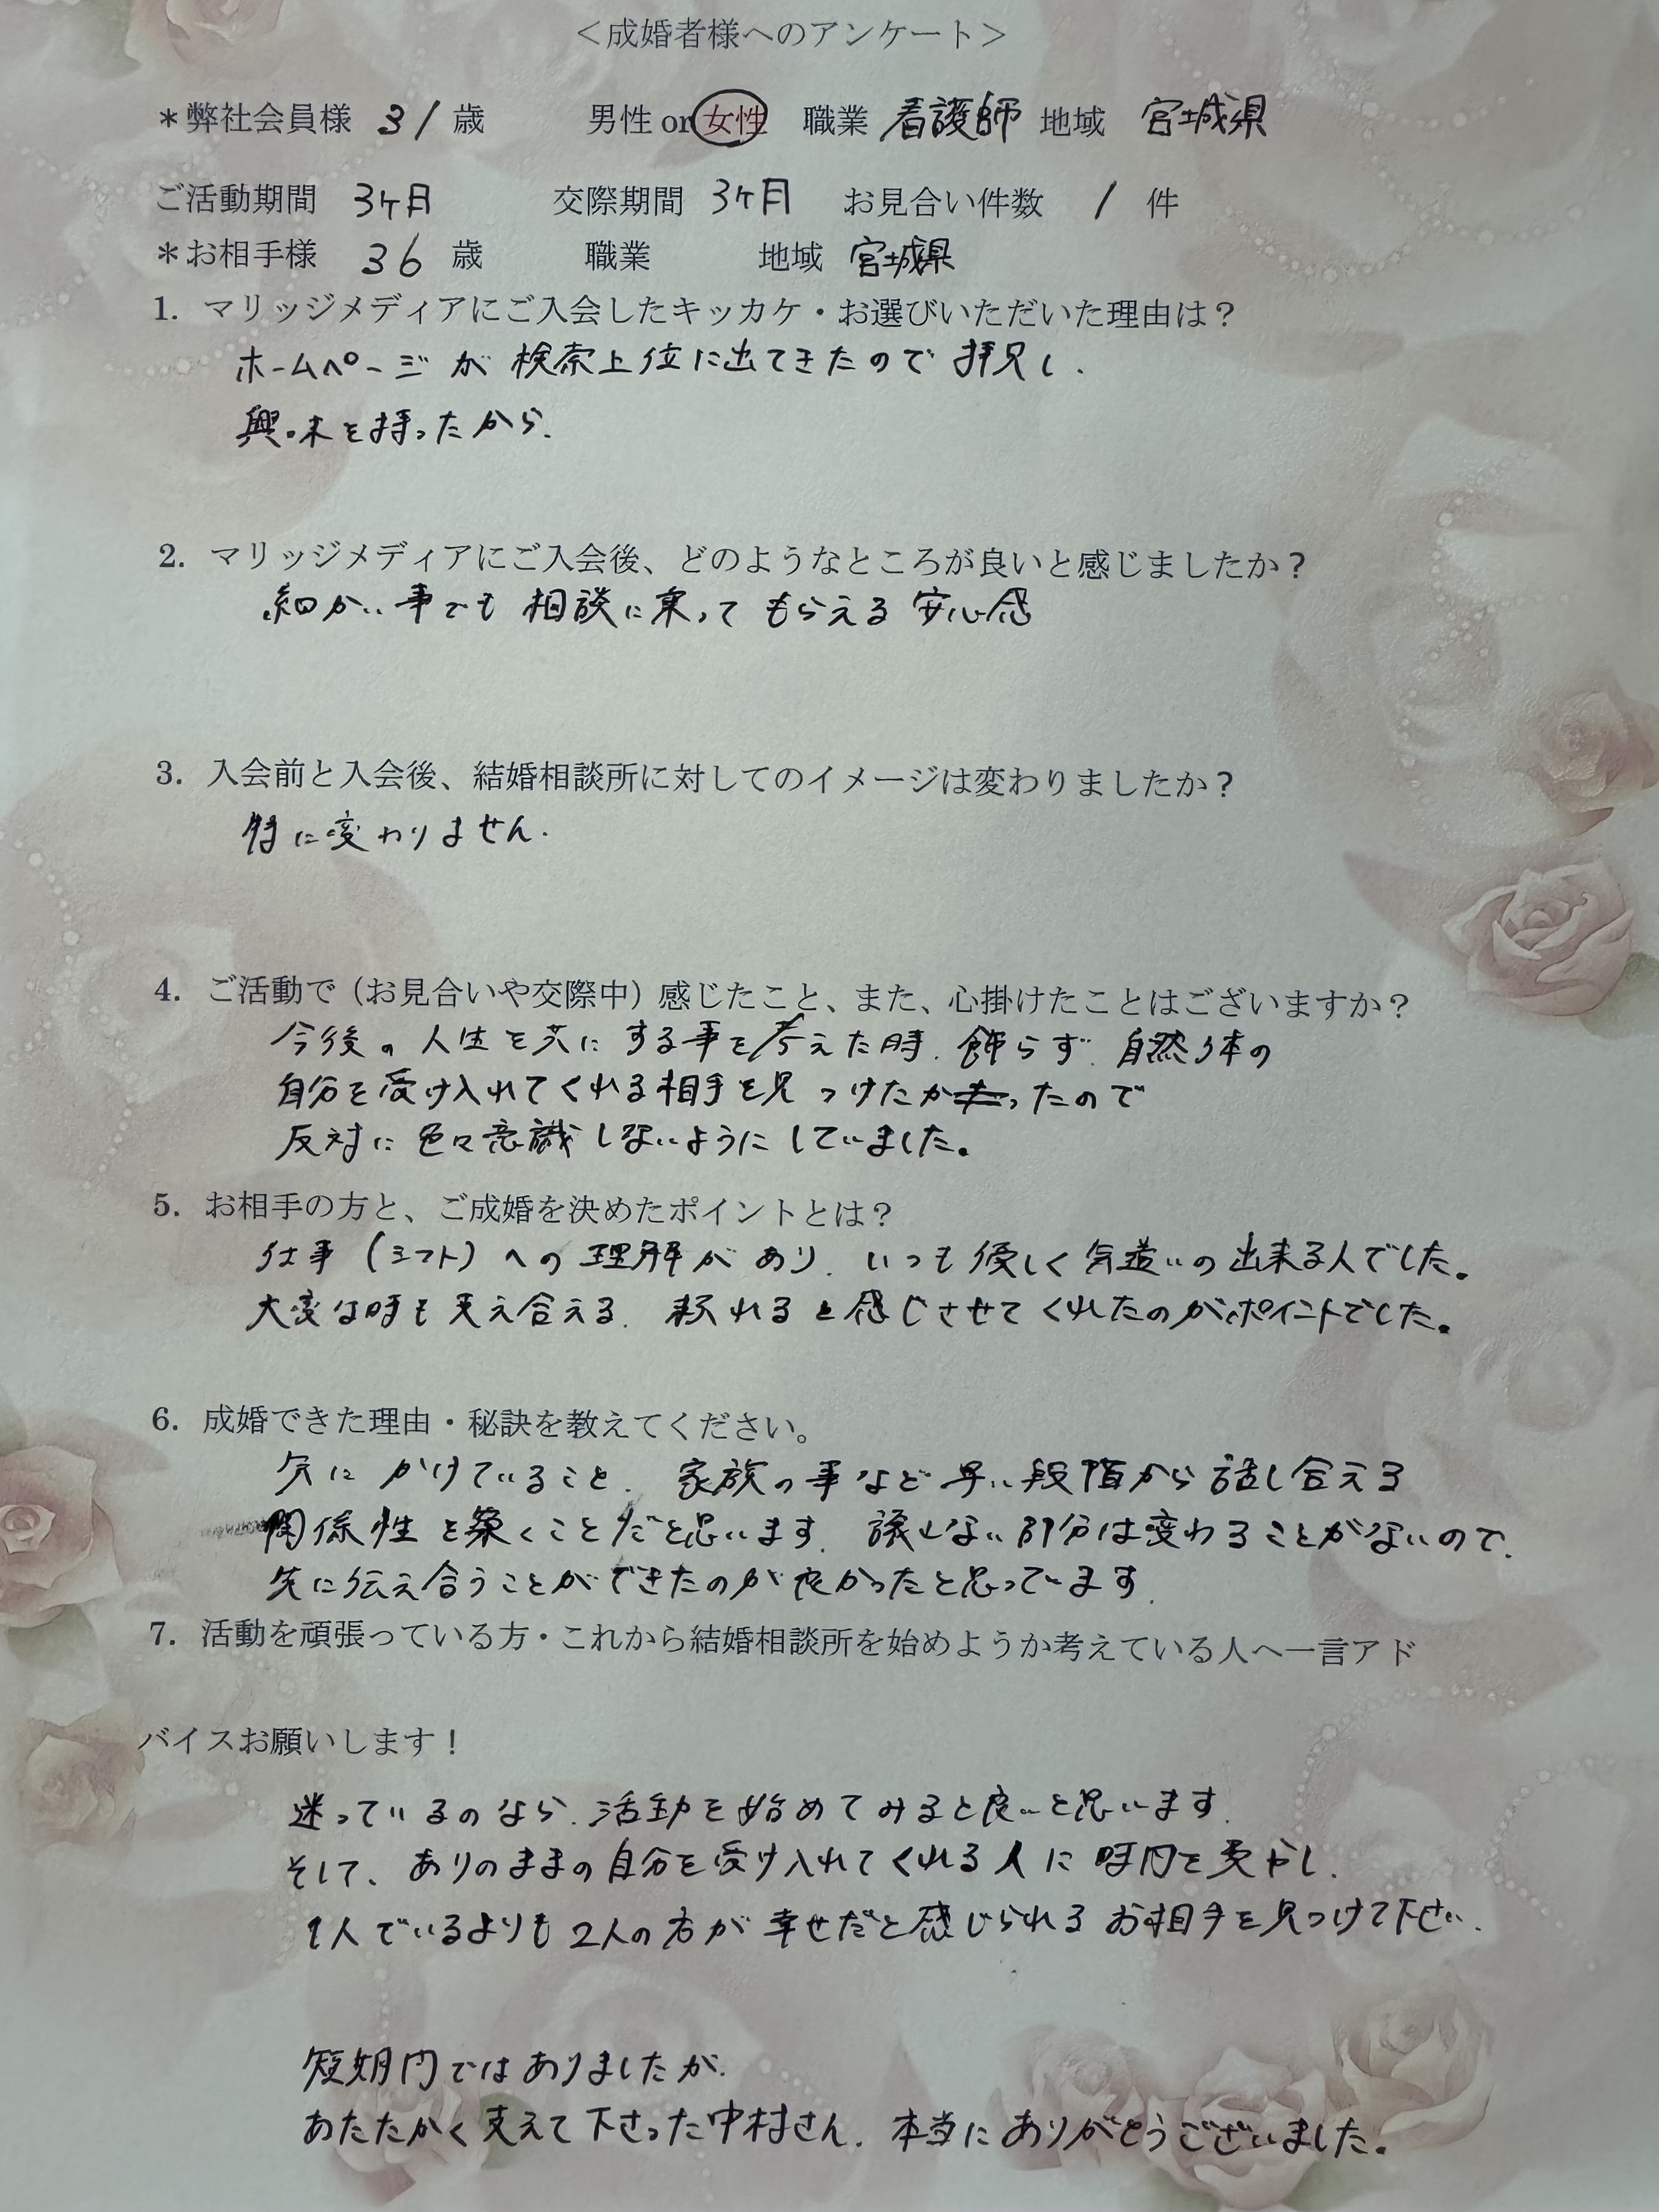 ＜成婚者様へのアンケート＞
＊弊社会員様 31 歳 男性 or 女性 職業 看護師 地域 宮城県
ご活動期間 3ヶ月 交際期間 3ヶ月 お見合い件数 1 件
＊お相手様 36 歳 職業 地域 宮城県
1. マリッジメディアにご入会したキッカケ・お選びいただいた理由は？
ホームページが検索上位に出てきたので拝見し、
興味を持ったから。
2. マリッジメディアにご入会後、どのようなところが良いと感じましたか？
細かい事でも相談に乗ってもらえる安心感
3. 入会前と入会後、結婚相談所に対してのイメージは変わりましたか？
特に変わりません。
4. ご活動で（お見合いや交際中）感じたこと、また、心掛けたことはございますか？
今後の人生を共にする事を考えた時、飾らず、自然体の
自分を受け入れてくれる相手を見つけたかったので
反対に色々意識しないようにしていました。
5. お相手の方と、ご成婚を決めたポイントとは？
仕事（シフト）への理解があり、いつも優しく気遣いの出来る人でした。
大変な時も支え合える、頼れると感じさせてくれたのがポイントでした。
6. 成婚できた理由・秘訣を教えてください。
気にかけていること、家族の事など早い段階から話し合える
関係性を築くことだと思います。譲れない部分は変わることがないので、
先に伝え合うことができたのが良かったと思っています。
7. 活動を頑張っている方・これから結婚相談所を始めようか考えている人へ一言アド
バイスお願いします！
迷っているのなら、活動を始めてみると良いと思います。
そして、ありのままの自分を受け入れてくれる人に時間を費やし、
1人でいるよりも2人の方が幸せだと感じられるお相手を見つけて下さい。
短期間ではありましたが、
あたたかく支えて下さった中村さん、本当にありがとうございました。